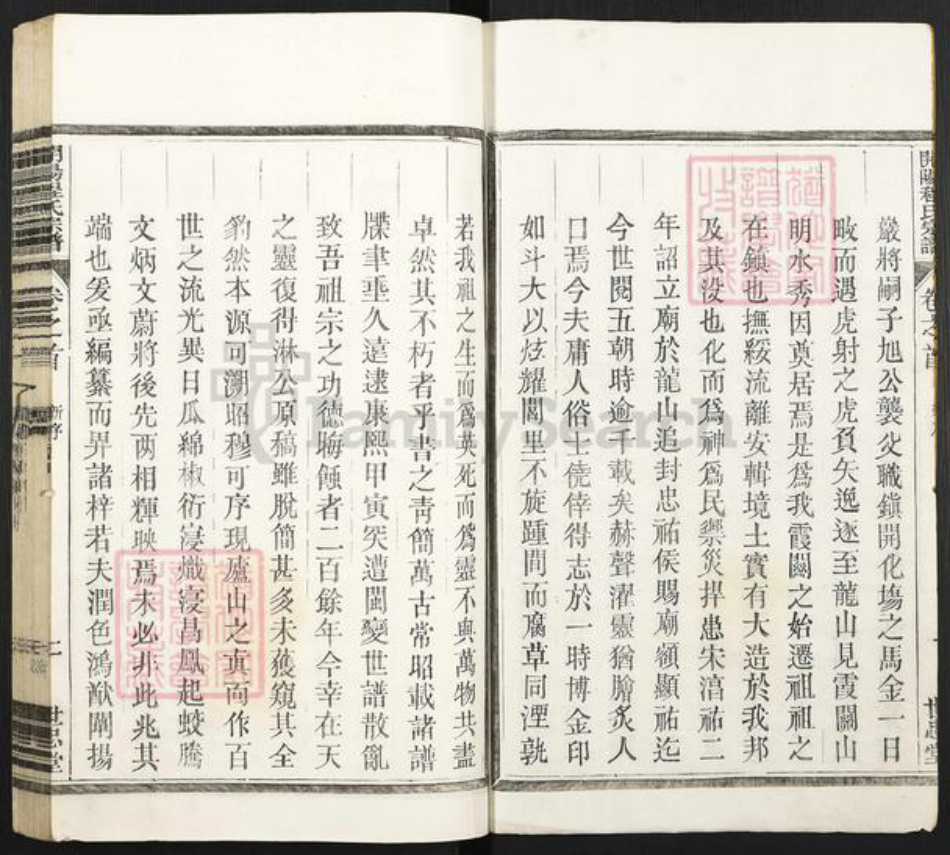 巖將嗣子旭公襲父職鎮開化場之馬金一日
畋而遇虎射之虎負矢逸逐至龍山見霞關山
明水秀因奠居焉是為我霞關之始遷祖祖之
在鎮也撫綏流離安輯境土實有大造於我邦
及其沒也化而為神為民禦災捍患宋淳祐二
年詔立廟於龍山追封忠祐侯賜廟額顯祐迄
今世閱五朝時逾千載矣赫聲濯靈猶膾炙人
口焉今夫庸人俗士僥倖得志於一時博金印
如斗大以炫耀閭里不旋踵間而腐草同湮孰
若我祖之生而為英死而為靈不與萬物共盡
卓然其不朽者乎書之青簡萬古常昭載諸譜
牒聿垂久遠逮康熙甲寅突遭閩變世譜散亂
致吾祖宗之功德晦蝕者二百餘年今幸在天
之靈復得淋公原稿雖脫簡甚多未獲窺其全
豹然本源可溯昭穆可序現廬山之真面作百
世之流光異日瓜綿椒衍寖熾寖昌鳳起蛟騰
文炳文蔚將後先兩相輝映焉未必非此兆其
端也爰亟編纂而畀諸梓若夫潤色鴻猷闡揚
開陽程氏宗譜
卷之首
世忠堂
FamilySearch